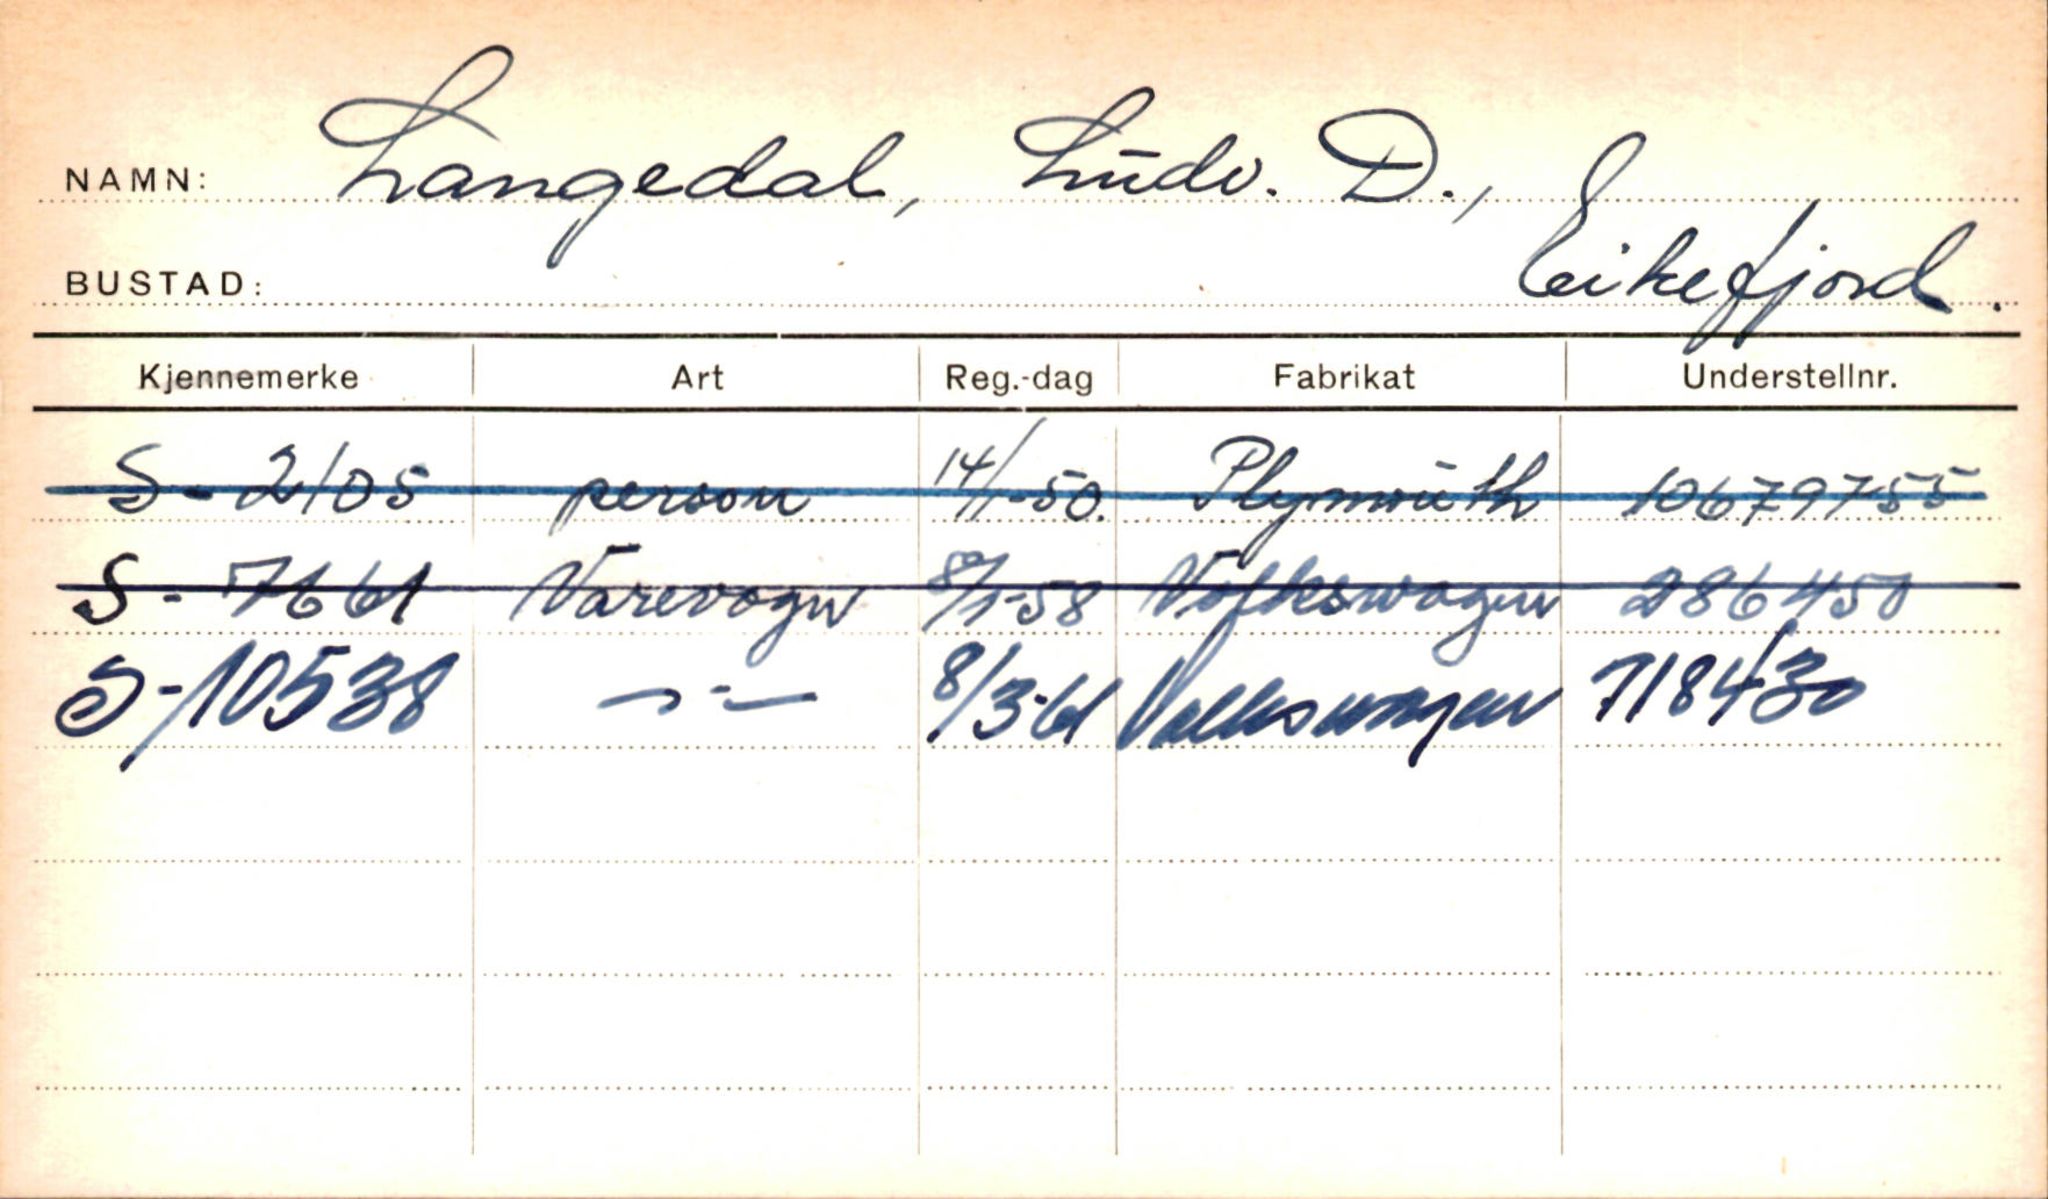 NAMN: Langedal, Ludv. D.,
BUSTAD: Eikefjord.
Kjennemerke Art Reg.-dag Fabrikat Understellnr.
S-2105 person 14/1-50. Plymouth 10679755
S-7661 Varevogn 8/1-58 Volkswagen 286450
S-10538 -"- 8/3-61 Volkswagen 718430